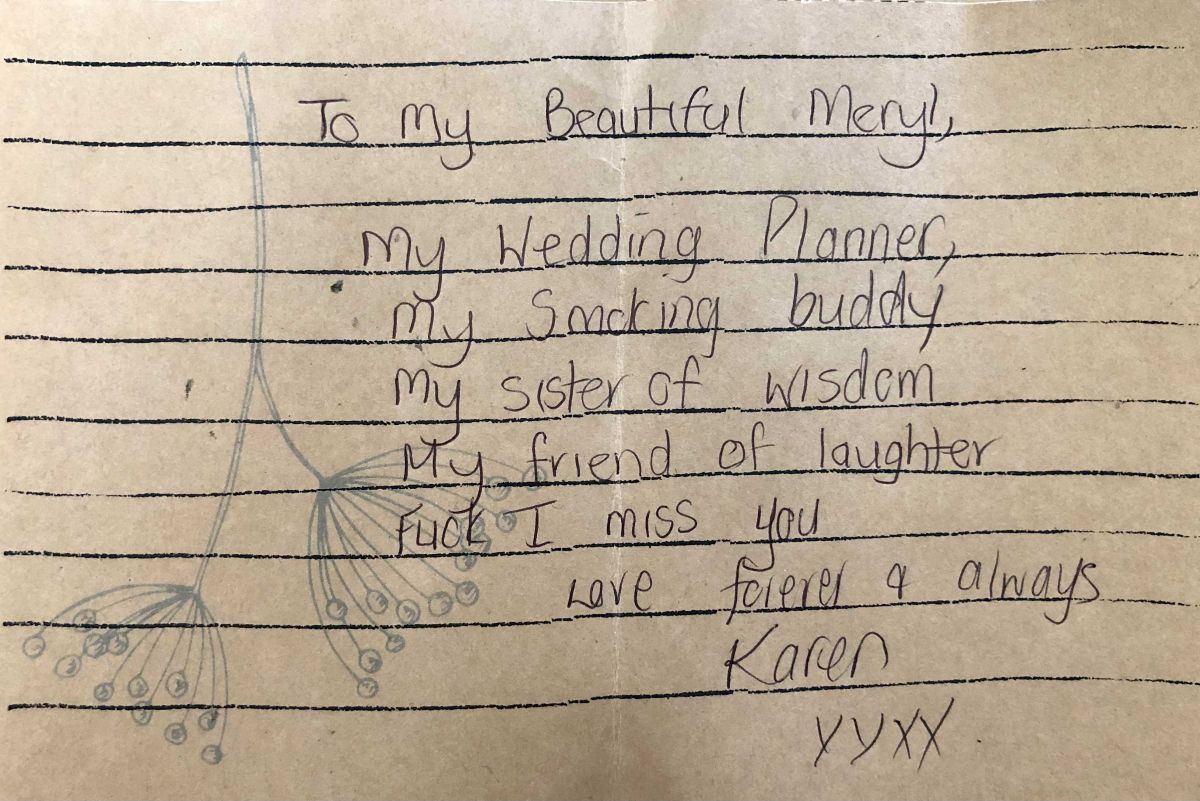 To My Beautiful Meryl,
My Wedding Planner,
My Smoking buddy
My sister of wisdom
My friend of laughter
Fuck I miss you
Love forever & always
Karen
xxxx